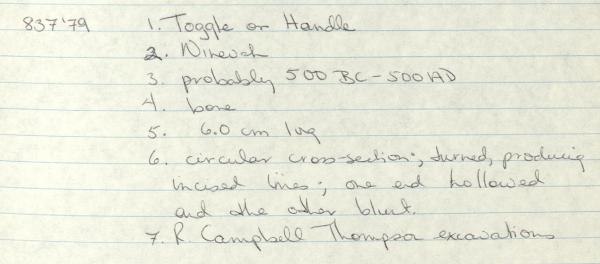 837'79 1. Toggle or Handle
2. Nineveh
3. probably 500 BC - 500 AD
4. bone
5. 6.0 cm long
6. circular cross-section; turned, producing
incised lines; one end hollowed
and the other blunt.
7. R. Campbell Thompson excavations